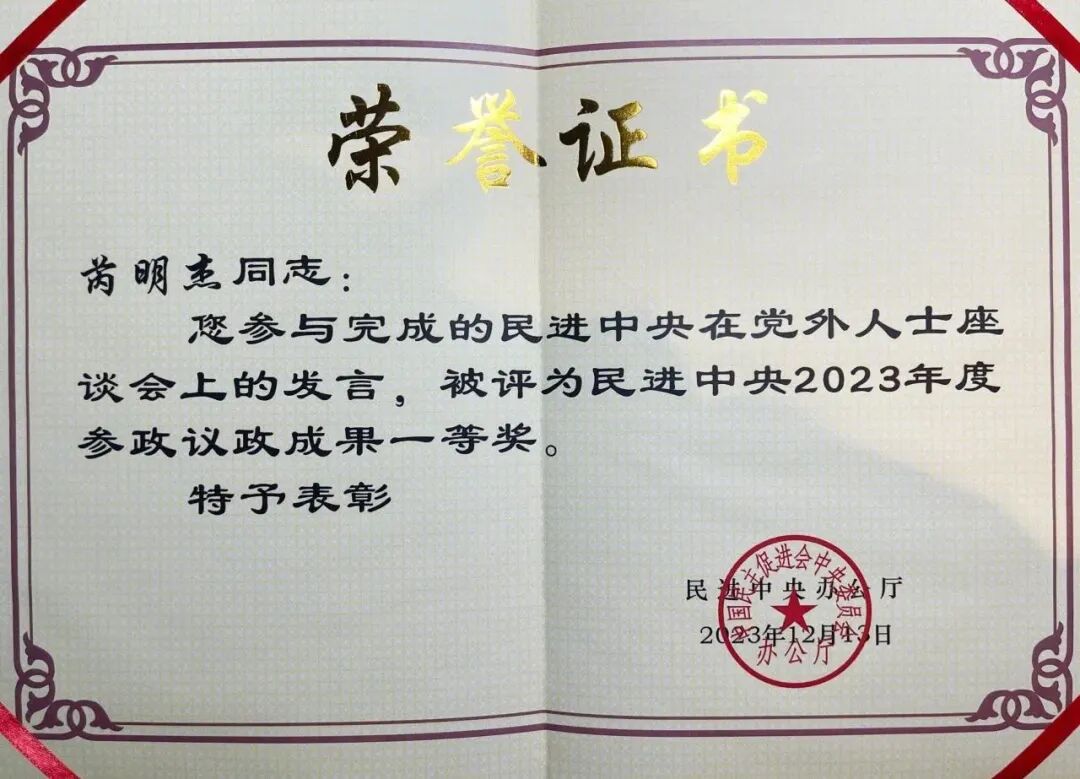 荣誉证书
芮明杰同志：
您参与完成的民进中央在党外人士座
谈会上的发言，被评为民进中央2023年度
参政议政成果一等奖。
特予表彰
民进中央办公厅
2023年12月13日
中国民主促进会中央委员会
办公厅